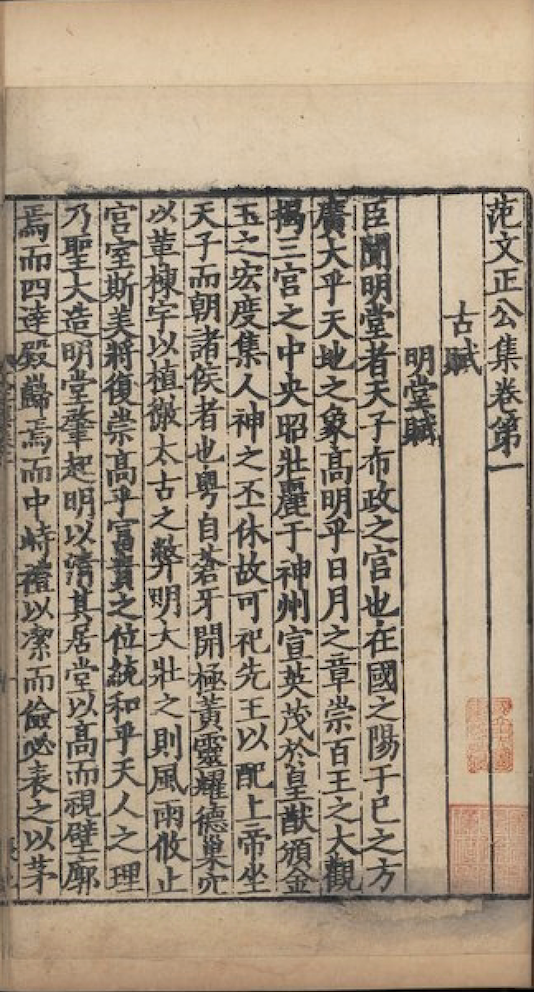 范文正公集卷第一
古賦
明堂賦
臣聞明堂者天子布政之宮也在國之陽于巳之方
廣大乎天地之象高明乎日月之章崇百王之大觀
揭三宮之中央昭壯麗于神州宣英茂於皇猷頒金
玉之宏度集人神之丕休故可祀先王以配上帝坐
天子而朝諸侯者也粤自蒼牙開極黃靈耀德巢穴
以革棟宇以植徹太古之弊明大壯之則風雨攸止
宮室斯美將復崇高乎富貴之位統和乎天人之理
乃聖大造明堂肇起明以清其居堂以高而視壁廓
焉而四達殿巋焉而中峙禮以潔而儉必表之以茅